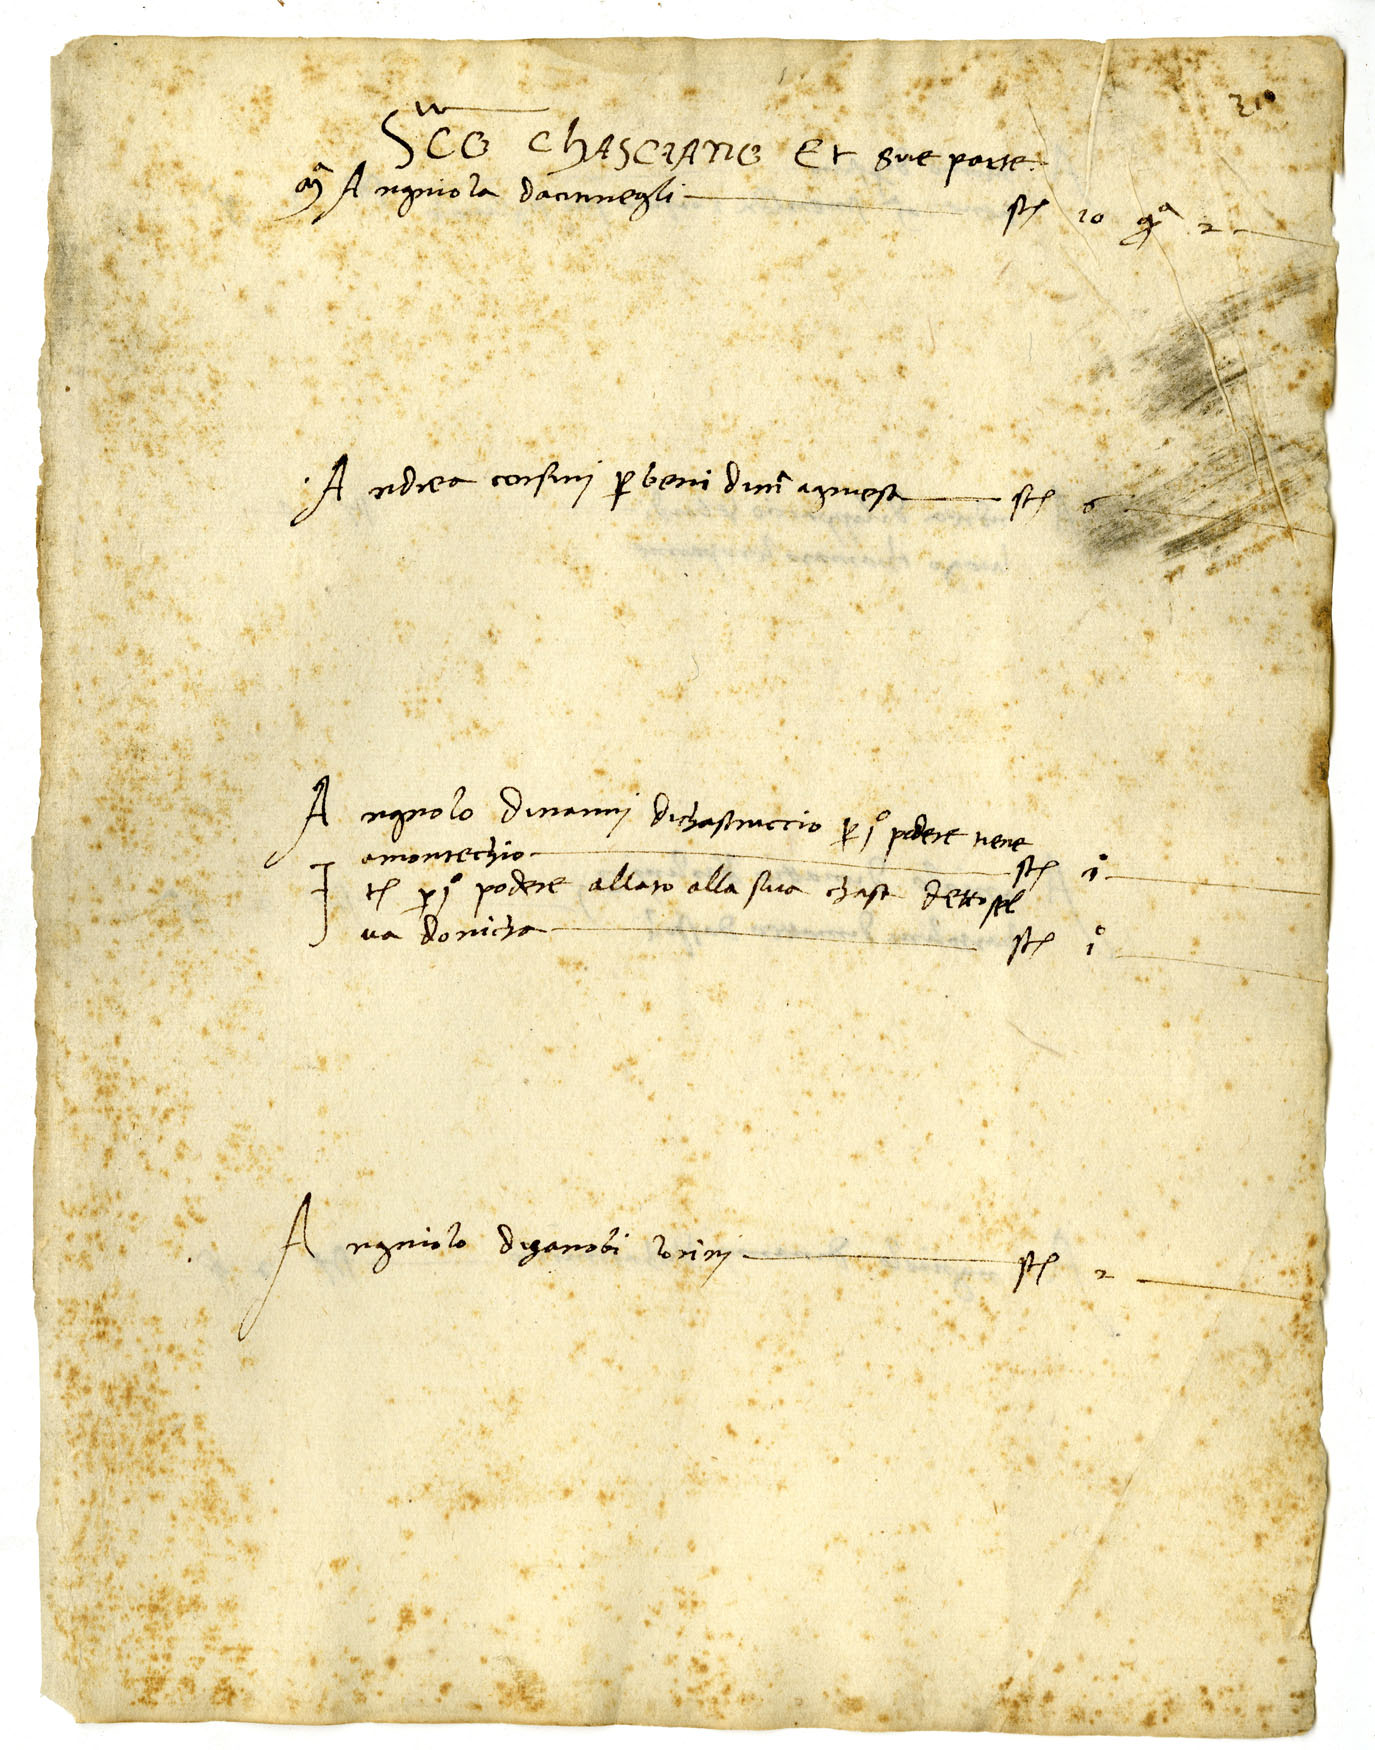 210
Sco Chasciano Et sue parte
Mª Angniola dacinnegli st 10 qª 2
Andrea corsini p beni dmª agniesa st 6
Angnolo dinanni dichastruccio p jº podere nene
amontechio st 1º
It p jº podere allato alla sua chasa detto sel
va donicha st 1º
Angniolo diganobi lorini st 2